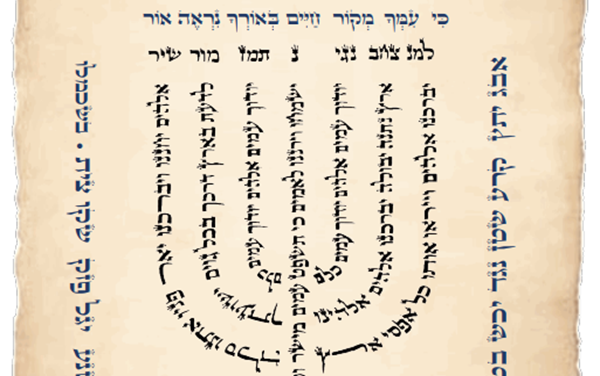 כִּי עִמְּךָ מְקוֹר חַיִּים בְּאוֹרְךָ נִרְאֶה אוֹר
למנ צחב נגי נ תמז מור שיר
אלהים יחננו ויברכנו יאר פניו אתנו סלה
לדעת בארץ דרכך בכל גוים ישועתך
יודוך עמים אלהים יודוך עמים כלם
ישמחו וירננו לאמים כי תשפט עמים מישר
יודוך עמים אלהים יודוך עמים כלם
ארץ נתנה יבולה יברכנו אלהים אלהינו
יברכנו אלהים וייראו אותו כל אפסי ארץ
אבג יתץ קרע שטן נגד יכש
יגל פזק שקו צית . בשכמלו